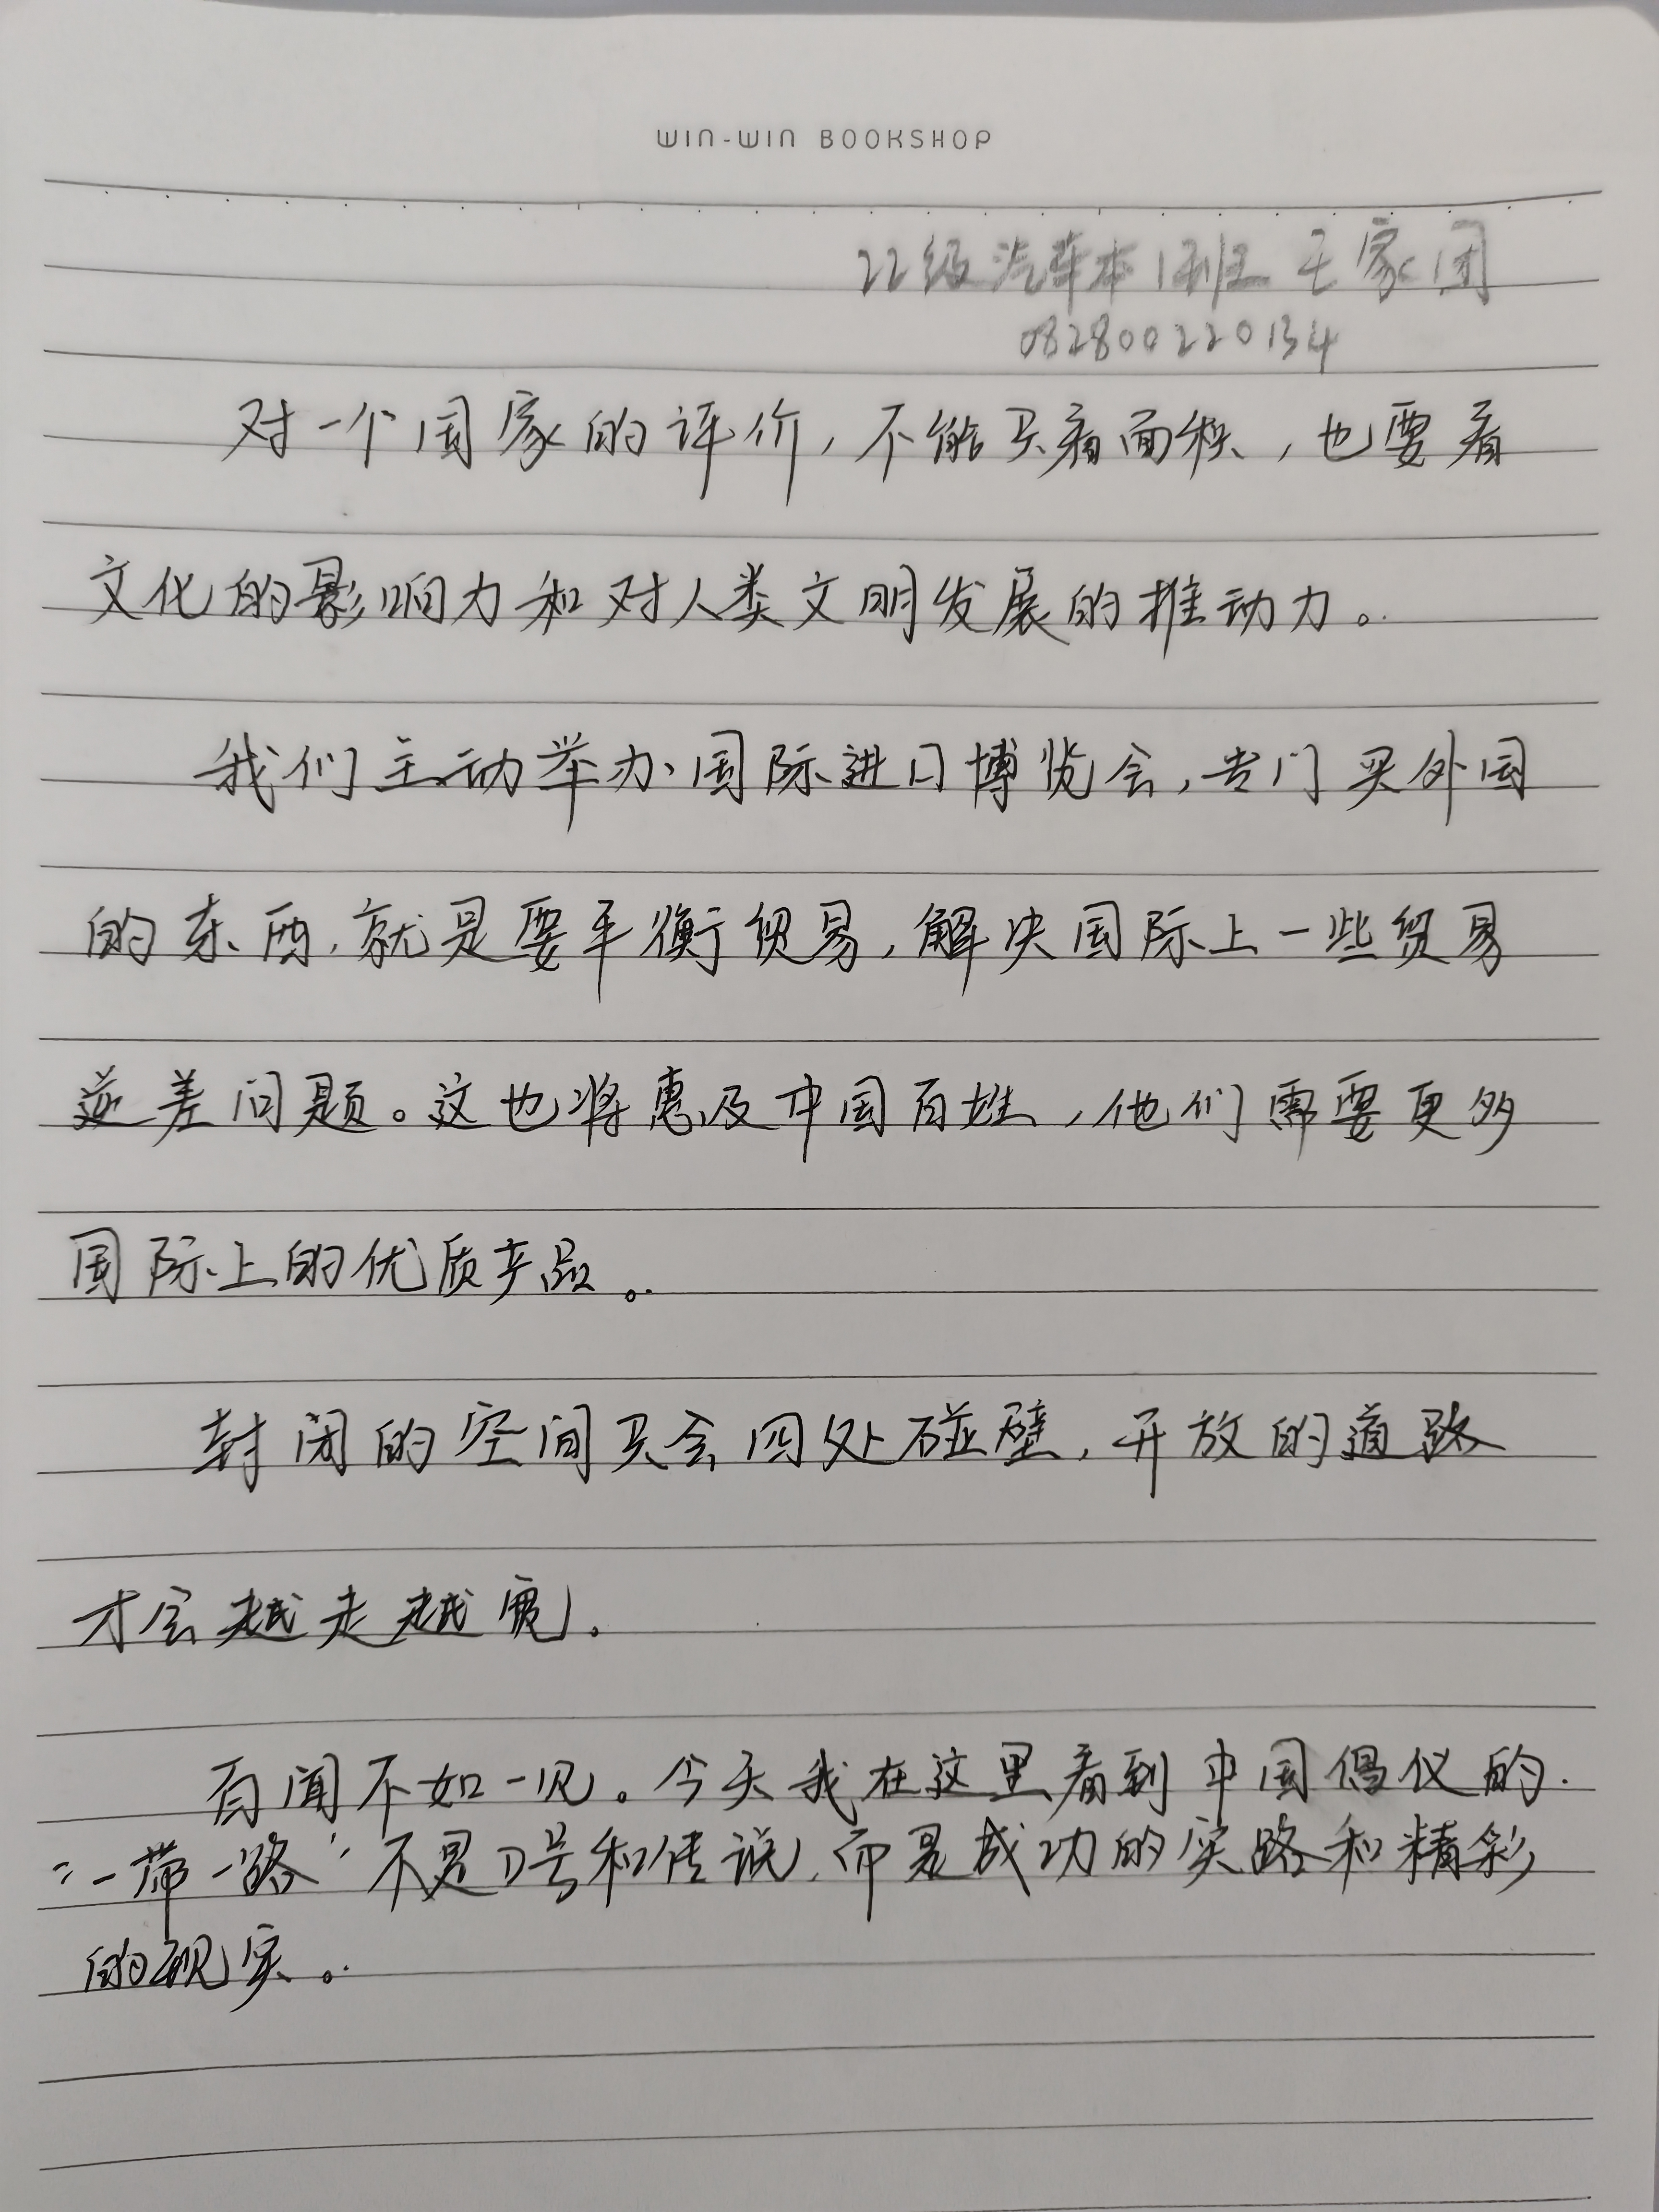 WIN-WIN BOOKSHOP
22级汽车本1班 王家团
082800220134
对一个国家的评价，不能只看面积，也要看
文化的影响力和对人类文明发展的推动力。
我们主动举办国际进口博览会，专门买外国
的东西，就是要平衡贸易，解决国际上一些贸易
逆差问题。这也将惠及中国百姓，他们需要更多
国际上的优质产品。
封闭的空间只会四处碰壁，开放的道路
才会越走越宽。
百闻不如一见。今天我在这里看到中国倡仪的
“一带一路”不是口号和传说，而是成功的实路和精彩
的现实。